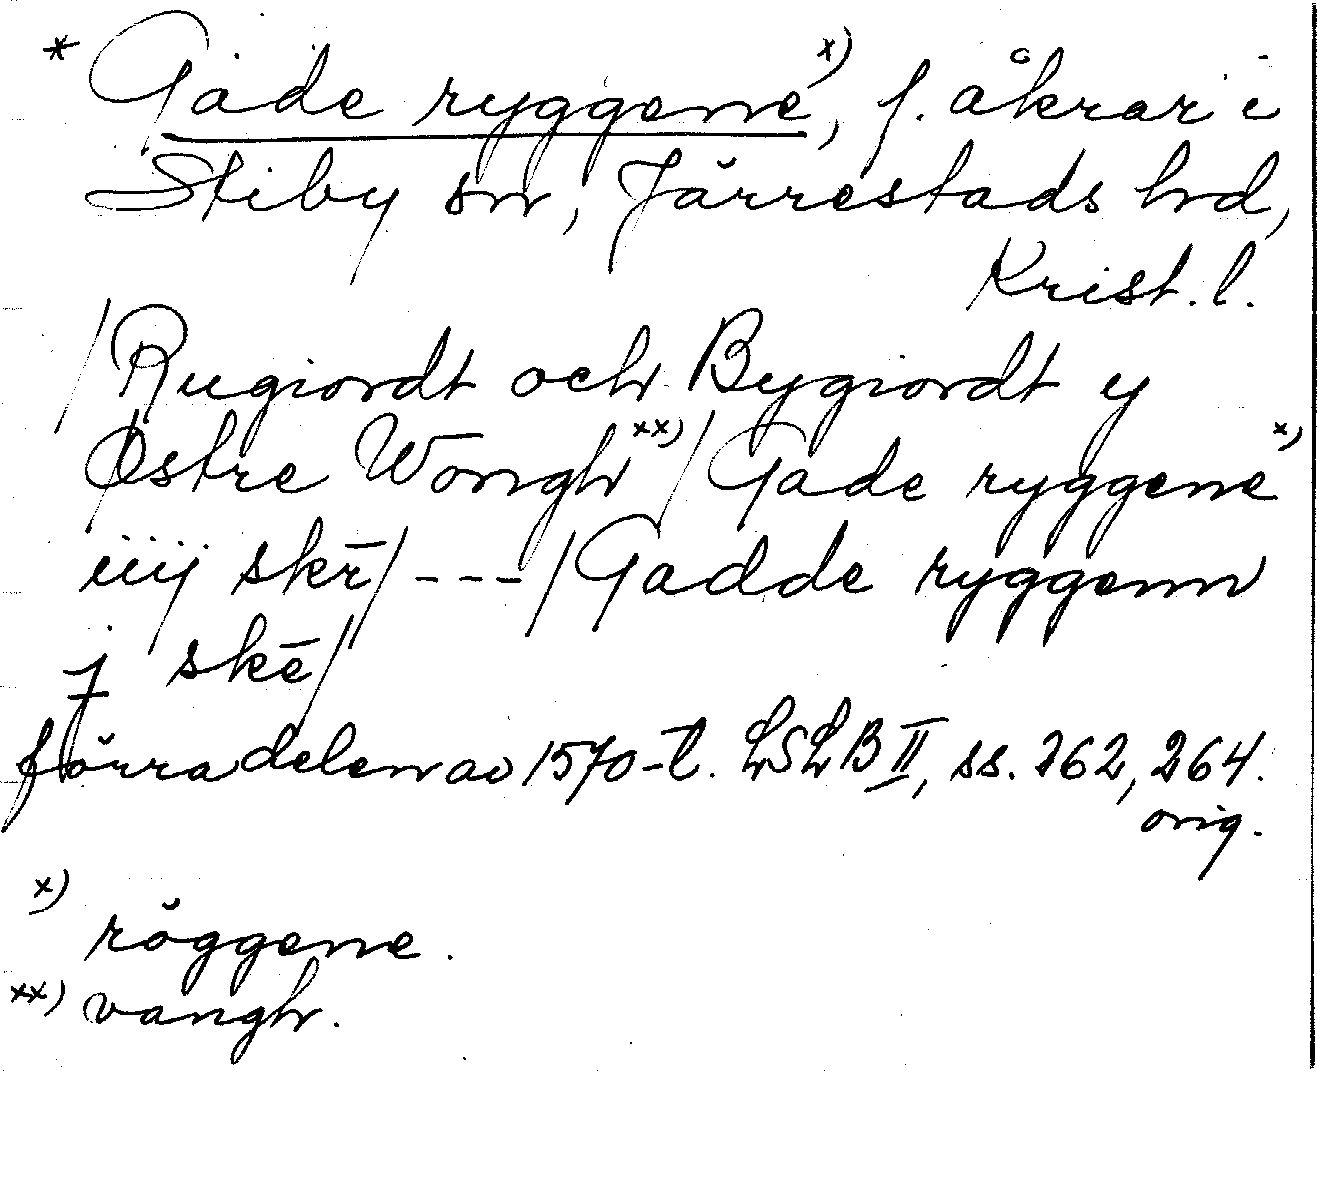 * Gade ryggene x), f. åkrar i
Stiby sn, Järrestads hd,
Krist. l.
/Rugiordt och Bygiordt y
Østre Wongh xx)/Gade ryggene x)
iiij skr̄/---/Gadde ryggenn
j skē/
förra delen av 1570-t. LSLB II, ss. 262, 264.
orig.
x) röggene.
xx) vangh.